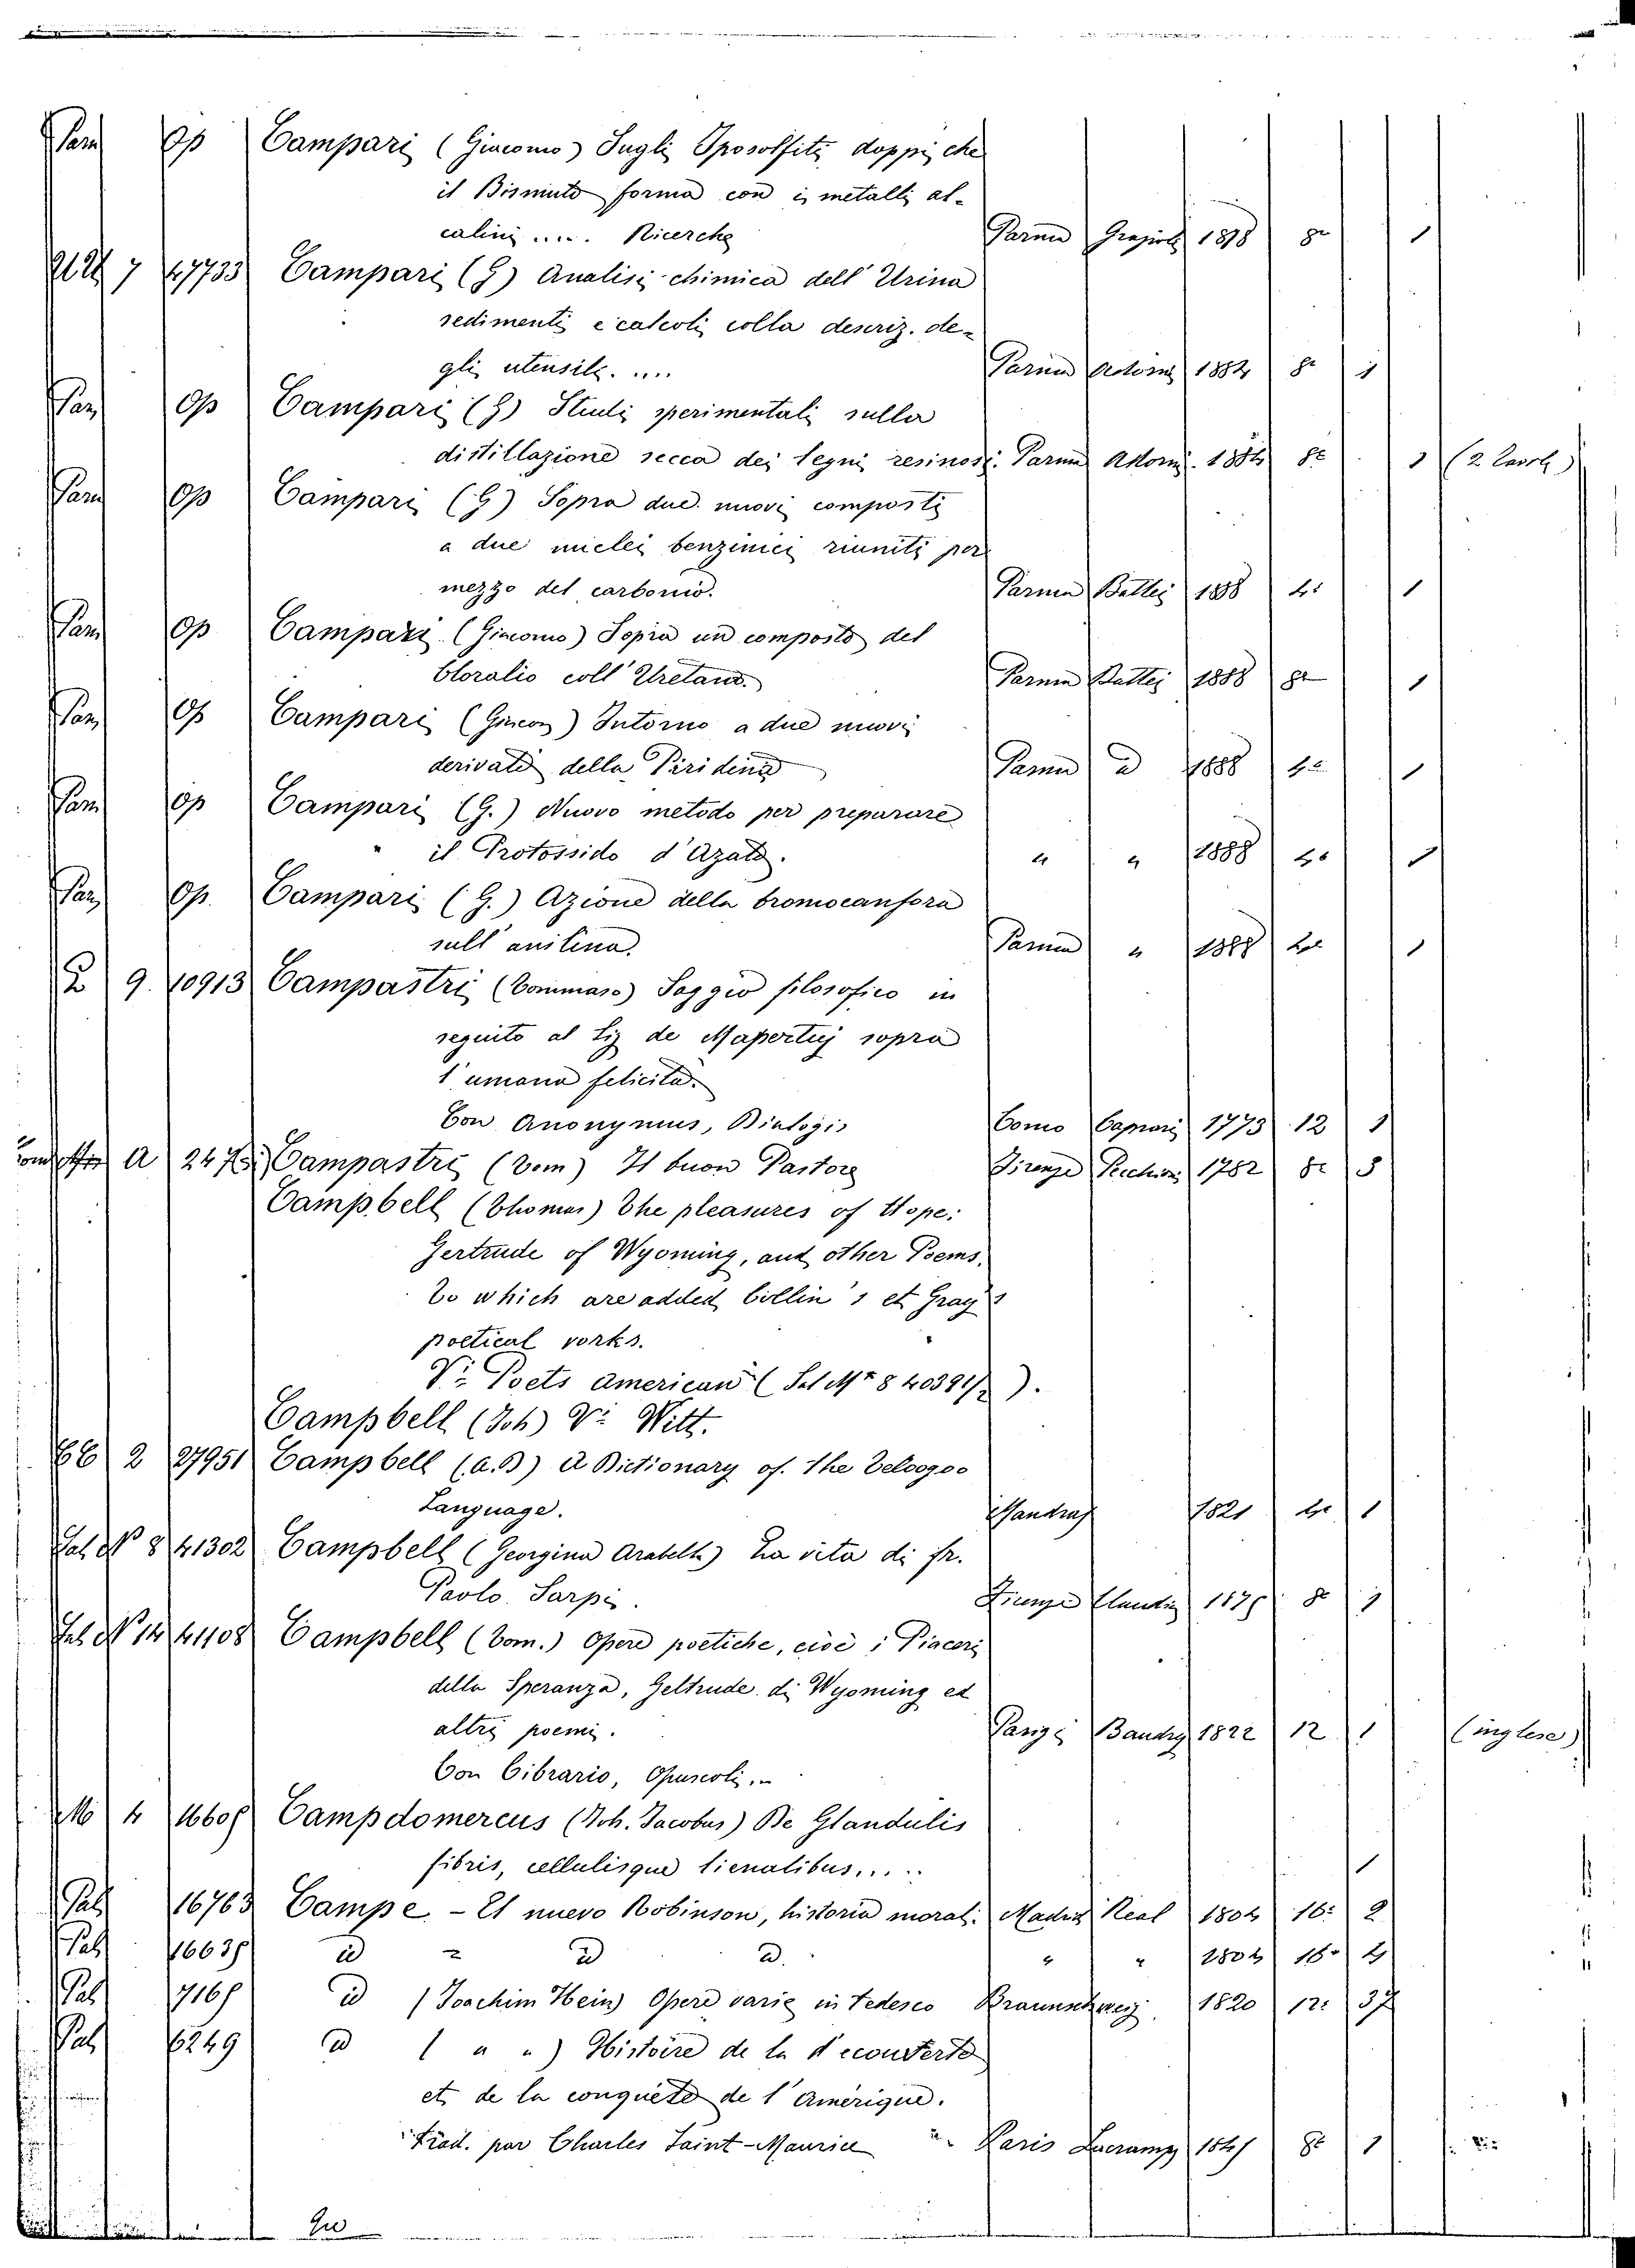 Par Op Campari (Giacomo) Sugli Iposolfiti doppi che
il Bismuto forma con i metalli al-
calini ..... Ricerche Parma 1878 8° 1
7 47733 Campari (G) Analisi chimica dell' Urina
sedimenti e calcoli colla descriz. de-
gli utensili. .... Parma Adorni 1882 8° 1
Par Op Campari (G) Studi sperimentali sulla
distillazione secca dei legni resinosi. Parma Adorni. 8° 1 (2 Tavole)
Par Op Campari (G) Sopra due nuovi composti
a due nuclei benzinici riuniti per
mezzo del carbonio. Parma Battei 1888 4° 1
Par Op Campari (Giacomo) Sopra un composto del
Cloralio coll' Uretano. Parma Battei 1888 8° 1
Par Op Campari (Giacom) Intorno a due nuovi
derivati della Piridina Parma id 1888 4° 1
Par Op Campari (G.) Nuovo metodo per preparare
il Protossido d'Azoto. " " 1888 4° 1
Par Op. Campari (G.) Azione della bromocanfora
sull' anilina. Parma " 1888 4° 1
9. 10913 Campastri (Tommaso) Saggio filosofico in
seguito al Sig de Mapertuj sopra
l'umana felicità.
Con Anonymus, Dialogi, Como Caprari 1773 12 1
A Campastri (Tom) Il buon Pastore Firenze 1782 8° 3
Campbell (Thomas) The pleasures of Hope;
Gertrude of Wyoming, and other Poems.
To which are added Collin's et Gray's
poetical vorks.
V: Poets american (Sal Mr 8 40391/2).
Campbell (Joh) V: Witt.
CC 2 27951 Campbell (A.D) A Dictionary of. the Teloogoo
Language. Mandras 1821 4° 1
Sal N 8 41302 Campbell (Georgina Arabella) La vita di fr.
Paolo Sarpi. Firenze Claudi 8° 1
Sal N 14 41108 Campbell (Tom.) Opere poetiche, cioè i Piaceri
della Speranza, Geltrude di Wyoming ed
altri poemi. Parigi Baudry 1822 12 1 (inglese)
Con Cibrario, Opuscoli..
4 Campdomercus (Joh. Jacobus) De Glandulis
fibris, cellulisque lienalibus..... 1
Pal 16763 Campe - El nuevo Robinson, historia moral. Madrid Real 1804 16° 2
Pal id " id id. " " 1804 16° 2
Pal id (Joachim Hein) Opere varie in tedesco Braunschweig. 1820 12° 37
Pal 6249 id ( " " ) Histoire de la découverte
et de la conquête de l'Amérique.
Trad. par Charles Saint-Maurice Paris Lacrampe 8° 1